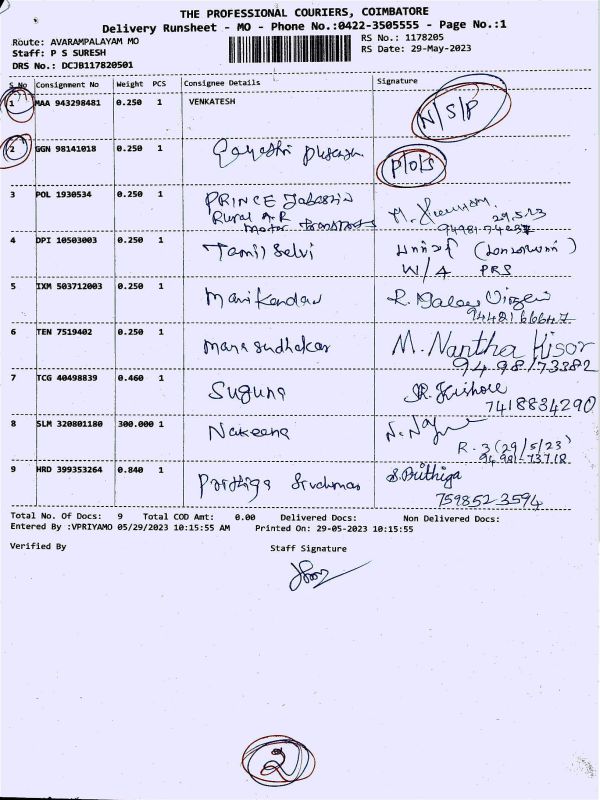 THE PROFESSIONAL COURIERS, COIMBATORE
Delivery Runsheet - MO - Phone No.:0422-3505555 - Page No.:1
Route: AVARAMPALAYAM MO RS No.: 1178205
Staff: P S SURESH RS Date: 29-May-2023
DRS No.: DCJB117820501
S No Consignment No Weight PCS Consignee Details Signature
1 MAA 943298481 0.250 1 VENKATESH N/S/P
2 GGN 98141018 0.250 1 Gayathri P/O/S
3 POL 1930534 0.250 1 PRINCE
Rural
motor 29.5.23
4 DPI 10503003 0.250 1 Tamil Selvi
W/A PRS
5 IXM 503712003 0.250 1 Manikandan R.
6 TEN 7519402 0.250 1 Mana Sudhakar M. Nantha Kisor
94.98/73382
7 TCG 40498839 0.460 1 Suguna R. Kishore
7418834290
8 SLM 320801180 300.000 1 Nakeena
R-3 (29/5/23)
94981-73718
9 HRD 399353264 0.840 1 S. Prithiga
7598523594
Total No. Of Docs: 9 Total COD Amt: 0.00 Delivered Docs: Non Delivered Docs:
Entered By :VPRIYAMO 05/29/2023 10:15:55 AM Printed On: 29-05-2023 10:15:55
Verified By Staff Signature
2